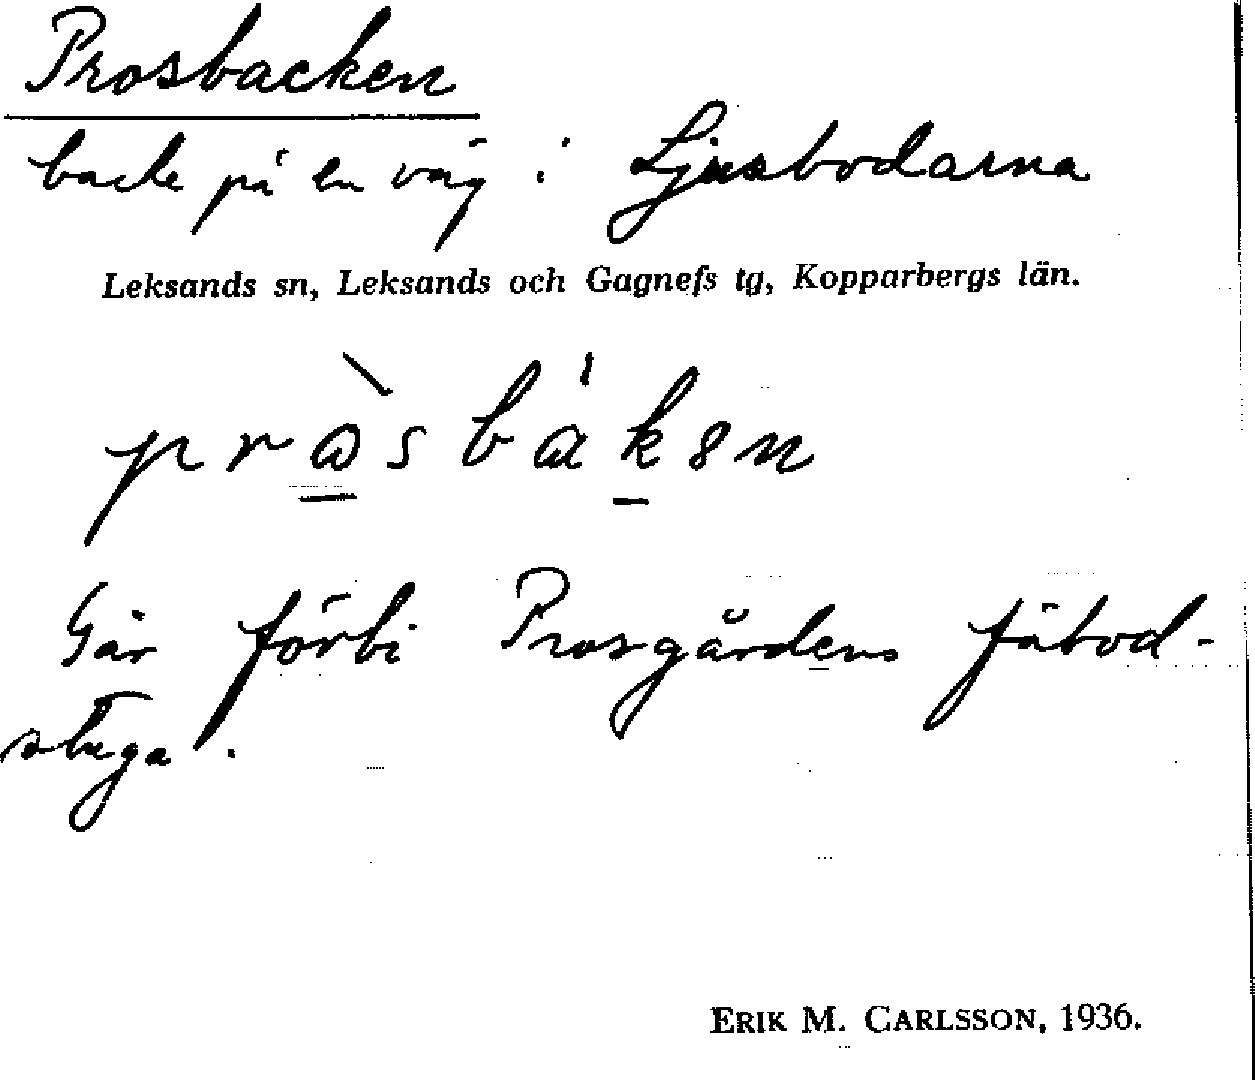 Prosbacken
backe på en väg i Ljusbodarna
Leksands sn, Leksands och Gagnefs tg, Kopparbergs län.
pròsbákən
Går förbi Prosgårdens fäbod-
stuga.
ERIK M. CARLSSON, 1936.